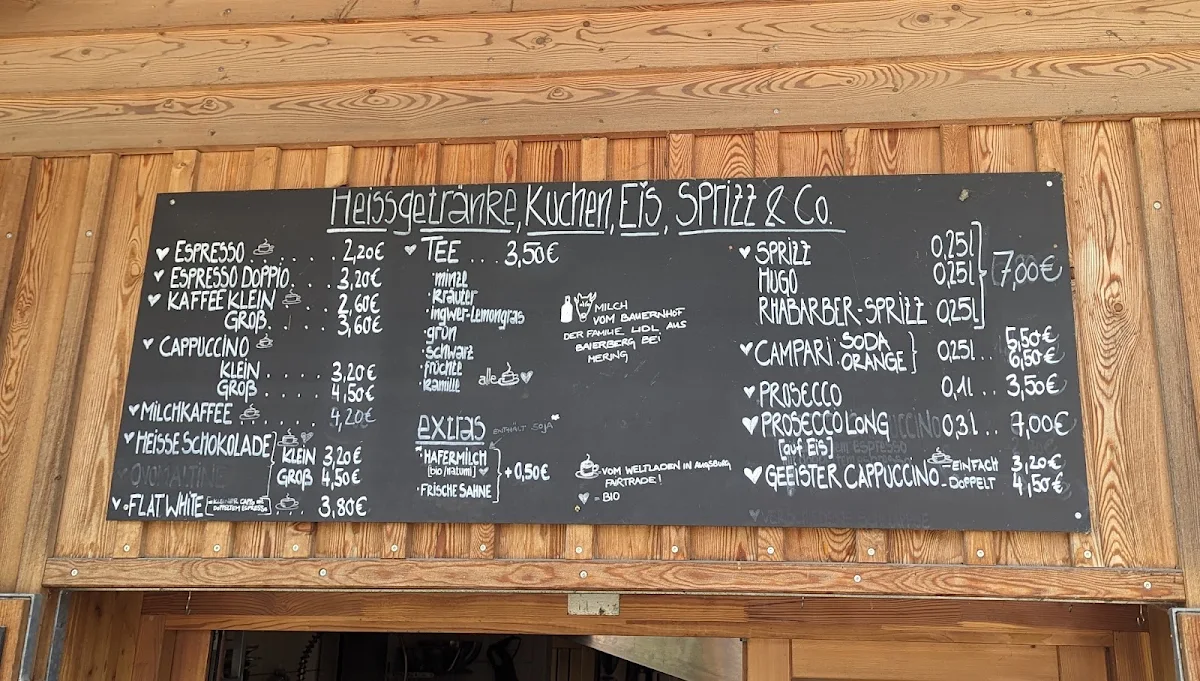 Heissgetränke, Kuchen, Eis, Sprizz & Co.
ESPRESSO . . . . . . . 2,20€
ESPRESSO DOPPIO. . . . 3,20€
KAFFEE KLEIN . . . 2,60€
GROß. . . . . 3,60€
CAPPUCCINO
KLEIN . . . . 3,20€
GROß . . . . 4,50€
MILCHKAFFEE . . . . 4,20€
HEISSE SCHOKOLADE KLEIN 3,20€
OVOMALTINE GROß 4,50€
FLAT WHITE . . . 3,80€
TEE . . . 3,50€
·minze
·kräuter
·ingwer-Lemongras
grün
·schwarz
·früchte
·kamille alle
extras
ENTHÄLT SOJA*
*HAFERMILCH
[bio/natumi] +0,50€
·FRISCHE SAHNE
MILCH
VOM BAUERNHOF
DER FAMILIE LIDL AUS
BAIERBERG BEI
MERING
VOM WELTLADEN IN AUGSBURG
FAIRTRADE!
= BIO
SPRIZZ 0,25l
HUGO 0,25l 7,00€
RHABARBER-SPRIZZ 0,25l
CAMPARI SODA 5,50€
ORANGE 0,25l . . 6,50€
PROSECCO 0,1l . . 3,50€
PROSECCO LONG 0,3l . . 7,00€
[auf Eis]
GEEISTER CAPPUCCINO -EINFACH 3,20€
-DOPPELT 4,50€